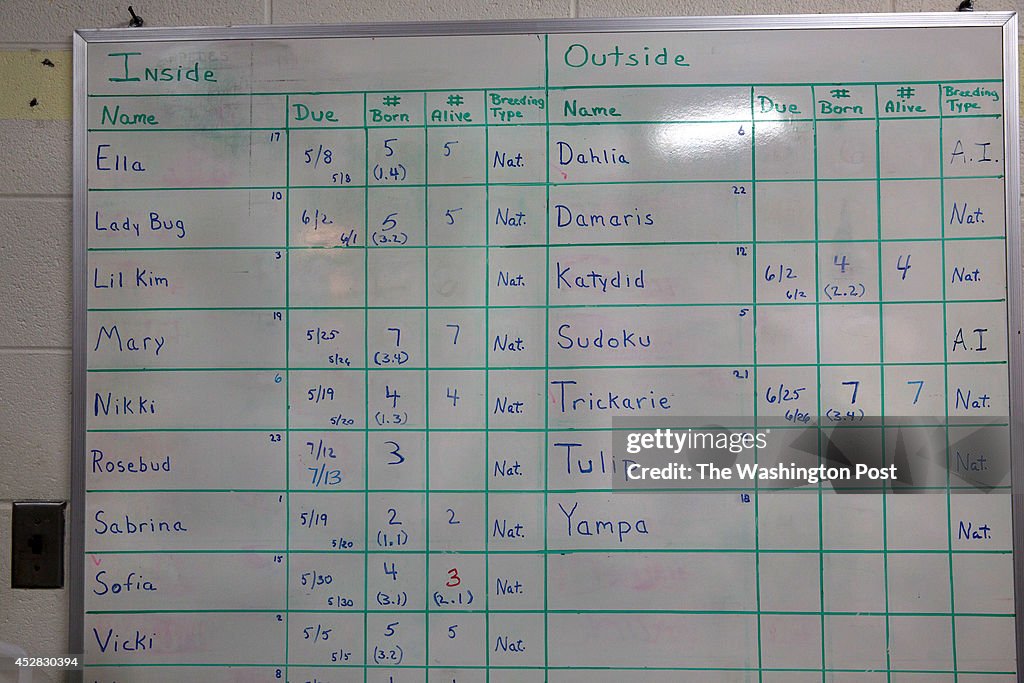 Inside Outside
Name Due # Born # Alive Breeding Type Name Due # Born # Alive Breeding Type
Ella 17 5/8 5/8 5 (1.4) 5 Nat. Dahlia 6 A.I.
Lady Bug 10 6/2 6/1 5 (3.2) 5 Nat. Damaris 22 Nat.
Lil Kim 3 Nat. Katydid 12 6/2 6/2 4 (2.2) 4 Nat.
Mary 19 5/25 5/26 7 (3.4) 7 Nat. Sudoku 5 A.I
Nikki 6 5/19 5/20 4 (1.3) 4 Nat. Trickarie 21 6/25 6/26 7 (3.4) 7 Nat.
Rosebud 23 7/12 7/13 3 Nat. Tulip Nat.
Sabrina 1 5/19 5/20 2 (1.1) 2 Nat. Yampa 18 Nat.
Sofia 15 5/30 5/30 4 (3.1) 3 (2.1) Nat.
Vicki 2 5/5 5/5 5 (3.2) 5 Nat.
8
gettyimages®
The Washington Post
452830394